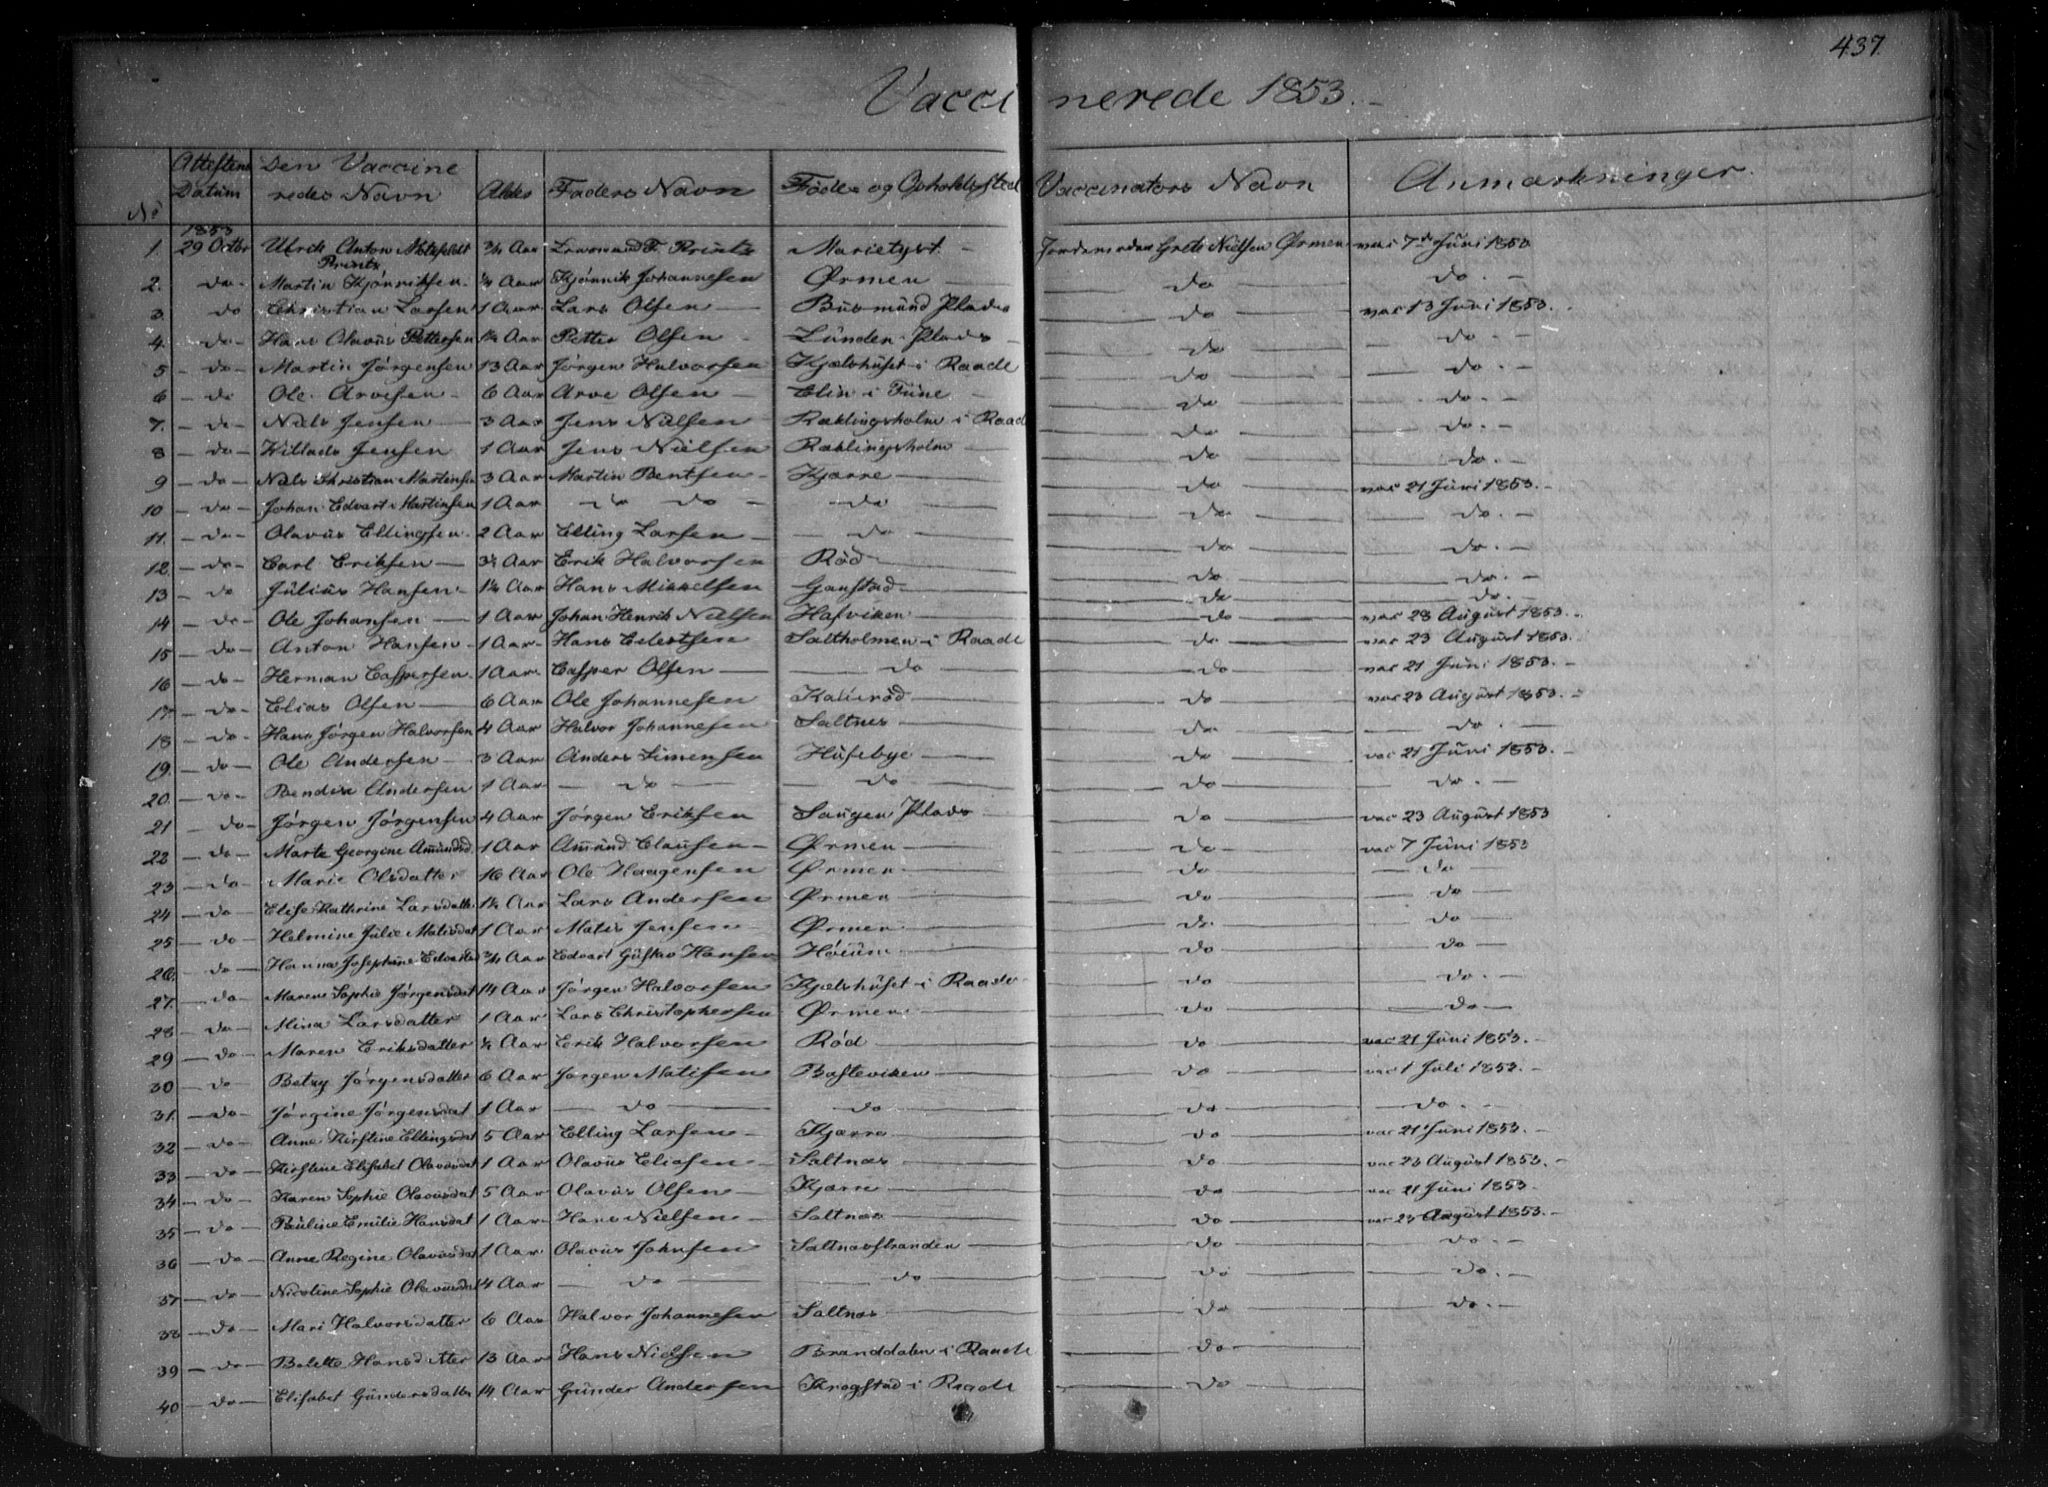 437.
Vaccinerede 1853.
No Attestens Datum Den Vaccineredes Navn Alder Faders Navn Føde og Opholdssted Vaccinators Navn Anmærkninger.
1853
1. 29 Octbr Ulrik Anton Motzfeldt Printz 3/4 Aar F. Printz Marielyst Jordemoder Grete Nielsen Ørmen vac 7de Juni 1853
2. do Martin Kjønniksen 1/4 Aar Kjønnik Johannesen Ørmen do do
3. do Christian Larsen 1 Aar Lars Olsen Busmund Plads do vac 13 Juni 1853.
4. do Hans Olavüs Pettersen Aar Petter Olsen Lünden Plads do do
5 do Martin Jørgensen 13 Aar Jørgen Halvorsen Kjølshüset i Raade do do
6 do Ole Arvesen 6 Aar Arve Olsen Elin i Tüne do do
7. do Niels Jensen 3 Aar Jens Nielsen Raklingsholm i Raad do do
8 do Willads Jensen 1 Aar Jens Nielsen Raklingsholm do do
9 do Niels Christian Martinsen 3 Aar Martin Bentsen Kjærre do vac 21 Jüni 1853.
10 do Johan Edvart Martinsen 1 Aar do do do do do
11. do Olavüs Ellingsen 2 Aar Elling Larsen do do do
12. do Carl Eriksen 3½ Aar Erik Halvorsen Rød do do
13 do Jülius Hansen Aar Hans Mikkelsen Ganstad do do
14 do Ole Johansen 1 Aar Johan Henrik Nielsen Hafviken do vac 23 August 1853.
15 do Anton Hansen 1 Aar Hans Edertsen Saltholmen i Raade do vac 23 Augüst 1853.
16 do Herman Caspersen 1 Aar Casper Olsen do do vac 21 Juni 1853.
17 do Elias Olsen 6 Aar Ole Johannesen do vac 23 Augüst 1853.
18 do Hans Jørgen Halvorsen 4 Aar Halvor Johannesen Saltnes do do
19. do Ole Andersen 3 Aar Anders Simensen Hüsebye do vac 21 Jüni 1853.
20 do Bendix Andersen 1 Aar do do do do
21 do Jørgen Jørgensen 4 Aar Jørgen Eriksen Saugen Plads do vac 23 Augüst 1853
22 do Marte Georgine Amündsd 1 Aar Amünd Claüsen Ørmen do vac 7 Jüni 1853
23 do Marie Olsdatter 16 Aar Ole Haagensen Ørmen do do
24 do Elise Kathrine Larsdatter Aar Lars Andersen Ørmen do do
25 do Helmine Jülie Matisdat 1 Aar Matis Jensen Ørmen do do
26. do Hanna Josephine Edvartsd 3/4 Aar Edvart Güstav Hansen Høiüm do do
27. do Maren Sophie Jørgensdat 14 Aar Jørgen Halvorsen Kjølshüset i Raade do do
28 do Mina Larsdatter 1 Aar Lars Christophersen Ørmen do do
29 do Maren Eriksdatter ½ Aar Erik Halvorsen Rød do vac 21 Jüni 1853.
30 do Betzy Jørgensdatter 6 Aar Jørgen Matisen Basteviken do vac 1 Juli 1853.
31. do Jørgine Jørgensdat 1 Aar do do do do
32 do Anne Kirstine Ellingsdat 5 Aar Elling Larsen Kjærre do vac 21 Juni 1853.
33 do Kirstine Elisabet Olavüsdat 1 Aar Olavüs Eliasen Saltnæs do vac 23 Augüst 1853.
34 do Karen Sophie Olavüsdat 5 Aar Olavüs Olsen Kjærre do vac 21 Jüni 1853
35 do Paüline Emilie Hansdat 1 Aar Hans Nielsen Saltnæs do vac 23 August 1853.
36 do Anne Regine Olavüsdat 1 Aar Olavüs Johnsen Saltnæsstranden do do
37 do Nicoline Sophie Olavüsdat 4 Aar do do do do
38 do Mari Halvorsdatter 6 Aar Halvor Johannesen Saltnæs do do
39 do Bolette Hansdatter 13 Aar Hans Nielsen Branddalen i Raade do
40 do Elisabet Gündersdatter 14 Aar Günder Andersen Krogstad i Raade do